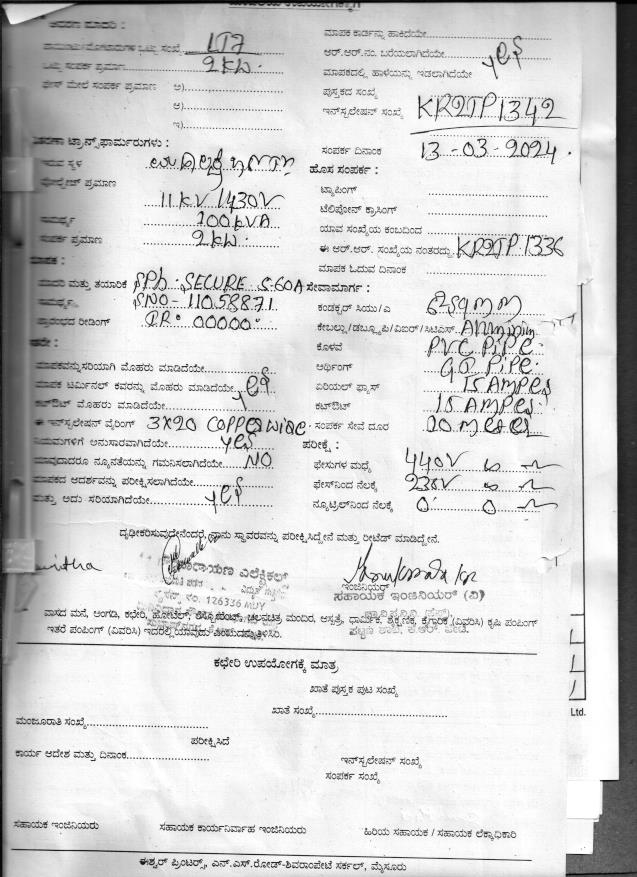 ಮಾಪಕ ಕಾರ್ಡನ್ನು ಹಾಕಿದೆಯೇ
LT7
ಆರ್.ಆರ್.ನಂ. ಬರೆಯಲಾಗಿದೆಯೇ yes
ಒಟ್ಟು ಸಂಪರ್ಕ ಪ್ರಮಾಣ 2KW
ಮಾಪಕದಲ್ಲಿ ಹಾಳೆಯನ್ನು ಇಡಲಾಗಿದೆಯೇ
ಫೇಸ್ ಮೇಲೆ ಸಂಪರ್ಕ ಪ್ರಮಾಣ ಅ)
ಪುಸ್ತಕದ ಸಂಖ್ಯೆ
ಆ)
ಇನ್‌ಸ್ಟಲೇಷನ್ ಸಂಖ್ಯೆ KR2TP1342
ಇ)
ಟ್ರಾನ್ಸ್‌ಫಾರ್ಮರುಗಳು :
ಸಂಪರ್ಕ ದಿನಾಂಕ 13-03-2024.
ಇರುವ ಸ್ಥಳ
ಹೊಸ ಸಂಪರ್ಕ :
ವೋಲ್ಟೇಜ್ ಪ್ರಮಾಣ 11KV/430V
ಟ್ಯಾಪಿಂಗ್
ಟೆಲಿಫೋನ್ ಕ್ರಾಸಿಂಗ್
ಸಾಮರ್ಥ್ಯ 100KVA
ಯಾವ ಸಂಖ್ಯೆಯ ಕಂಬದಿಂದ
ಸಂಪರ್ಕ ಪ್ರಮಾಣ 2KW
ಈ ಆರ್.ಆರ್. ಸಂಖ್ಯೆಯ ನಂತರದ್ದು KR2TP.1336
ಮಾಪಕ :
ಮಾಪಕ ಓದುವ ದಿನಾಂಕ
ಮಾದರಿ ಮತ್ತು ತಯಾರಿಕೆ SPh. SECURE 5-60A
ಸೇವಾಮಾರ್ಗ :
ಸಾಮರ್ಥ್ಯ SNO-11058871
ಕಂಡಕ್ಟರ್ ಸಿಯು/ಎ
ಪ್ರಾರಂಭದ ರೀಡಿಂಗ್ IR: 00000
ಕೇಬಲ್ಲು/ಡಬ್ಲ್ಯೂಪಿ/ವಿಐಆರ್/ಸಿಟಿಎಸ್
ಇತರೇ :
ಕೊಳವೆ PVC PiPe
ಮಾಪಕವನ್ನು ಸರಿಯಾಗಿ ಮೊಹರು ಮಾಡಿದೆಯೇ
ಅರ್ಥಿಂಗ್ G.I PiPe
ಮಾಪಕ ಟರ್ಮಿನಲ್ ಕವರನ್ನು ಮೊಹರು ಮಾಡಿದೆಯೇ yes
ಏರಿಯಲ್ ಫ್ಯೂಸ್ 15 AMPes
ಕಟ್‌ಔಟ್ ಮೊಹರು ಮಾಡಿದೆಯೇ
ಕಟ್‌ಔಟ್ 15 AMPes
ಈ ಇನ್‌ಸ್ಟಲೇಷನ್ ವೈರಿಂಗ್ 3X20 COPPER WIRE
ಸಂಪರ್ಕ ಸೇವೆ ದೂರ 20 meter
ನಿಯಮಗಳಿಗೆ ಅನುಸಾರವಾಗಿದೆಯೇ yes
ಪರೀಕ್ಷೆ :
ಯಾವುದಾದರೂ ನ್ಯೂನತೆಯನ್ನು ಗಮನಿಸಲಾಗಿದೆಯೇ NO
ಫೇಸುಗಳ ಮಧ್ಯೆ 440V
ಮಾಪಕದ ಆದರ್ಶವನ್ನು ಪರೀಕ್ಷಿಸಲಾಗಿದೆಯೇ
ಫೇಸ್‌ನಿಂದ ನೆಲಕ್ಕೆ 230V
ಮತ್ತು ಅದು ಸರಿಯಾಗಿದೆಯೇ yes
ನ್ಯೂಟ್ರಲ್‌ನಿಂದ ನೆಲಕ್ಕೆ 0 0
ದೃಢೀಕರಿಸುವುದೇನೆಂದರೆ, ನಾನು ಸ್ಥಾವರವನ್ನು ಪರೀಕ್ಷಿಸಿದ್ದೇನೆ ಮತ್ತು ರೀಟೆಡ್ ಮಾಡಿದ್ದೇನೆ.
ನಾರಾಯಣ ಎಲೆಕ್ಟ್ರಿಕಲ್
ಇಂಜಿನಿಯರ್
ನಂ. 126336 MUY
ಸಹಾಯಕ ಇಂಜಿನಿಯರ್ (ವಿ)
ವಾಸದ ಮನೆ, ಅಂಗಡಿ, ಕಛೇರಿ, ಹೋಟೆಲ್, ಚಲನಚಿತ್ರ ಮಂದಿರ, ಆಸ್ಪತ್ರೆ, ಧಾರ್ಮಿಕ, ಶೈಕ್ಷಣಿಕ, ಕೈಗಾರಿಕೆ (ವಿವರಿಸಿ) ಕೃಷಿ ಪಂಪಿಂಗ್
ಇತರೆ ಪಂಪಿಂಗ್ (ವಿವರಿಸಿ) ಇದರಲ್ಲಿ ಯಾವುದು
ಕಛೇರಿ ಉಪಯೋಗಕ್ಕೆ ಮಾತ್ರ
ಖಾತೆ ಪುಸ್ತಕ ಪುಟ ಸಂಖ್ಯೆ
ಖಾತೆ ಸಂಖ್ಯೆ
ಮಂಜೂರಾತಿ ಸಂಖ್ಯೆ
Ltd.
ಪರೀಕ್ಷಿಸಿದೆ
ಕಾರ್ಯ ಆದೇಶ ಮತ್ತು ದಿನಾಂಕ
ಇನ್‌ಸ್ಟಲೇಷನ್ ಸಂಖ್ಯೆ
ಸಂಪರ್ಕ ಸಂಖ್ಯೆ
ಸಹಾಯಕ ಇಂಜಿನಿಯರು ಸಹಾಯಕ ಕಾರ್ಯನಿರ್ವಾಹ ಇಂಜಿನಿಯರು ಹಿರಿಯ ಸಹಾಯಕ / ಸಹಾಯಕ ಲೆಕ್ಕಾಧಿಕಾರಿ
ಈಶ್ವರ್ ಪ್ರಿಂಟರ್ಸ್, ಎನ್.ಎಸ್.ರೋಡ್-ಶಿವರಾಂಪೇಟೆ ಸರ್ಕಲ್, ಮೈಸೂರು